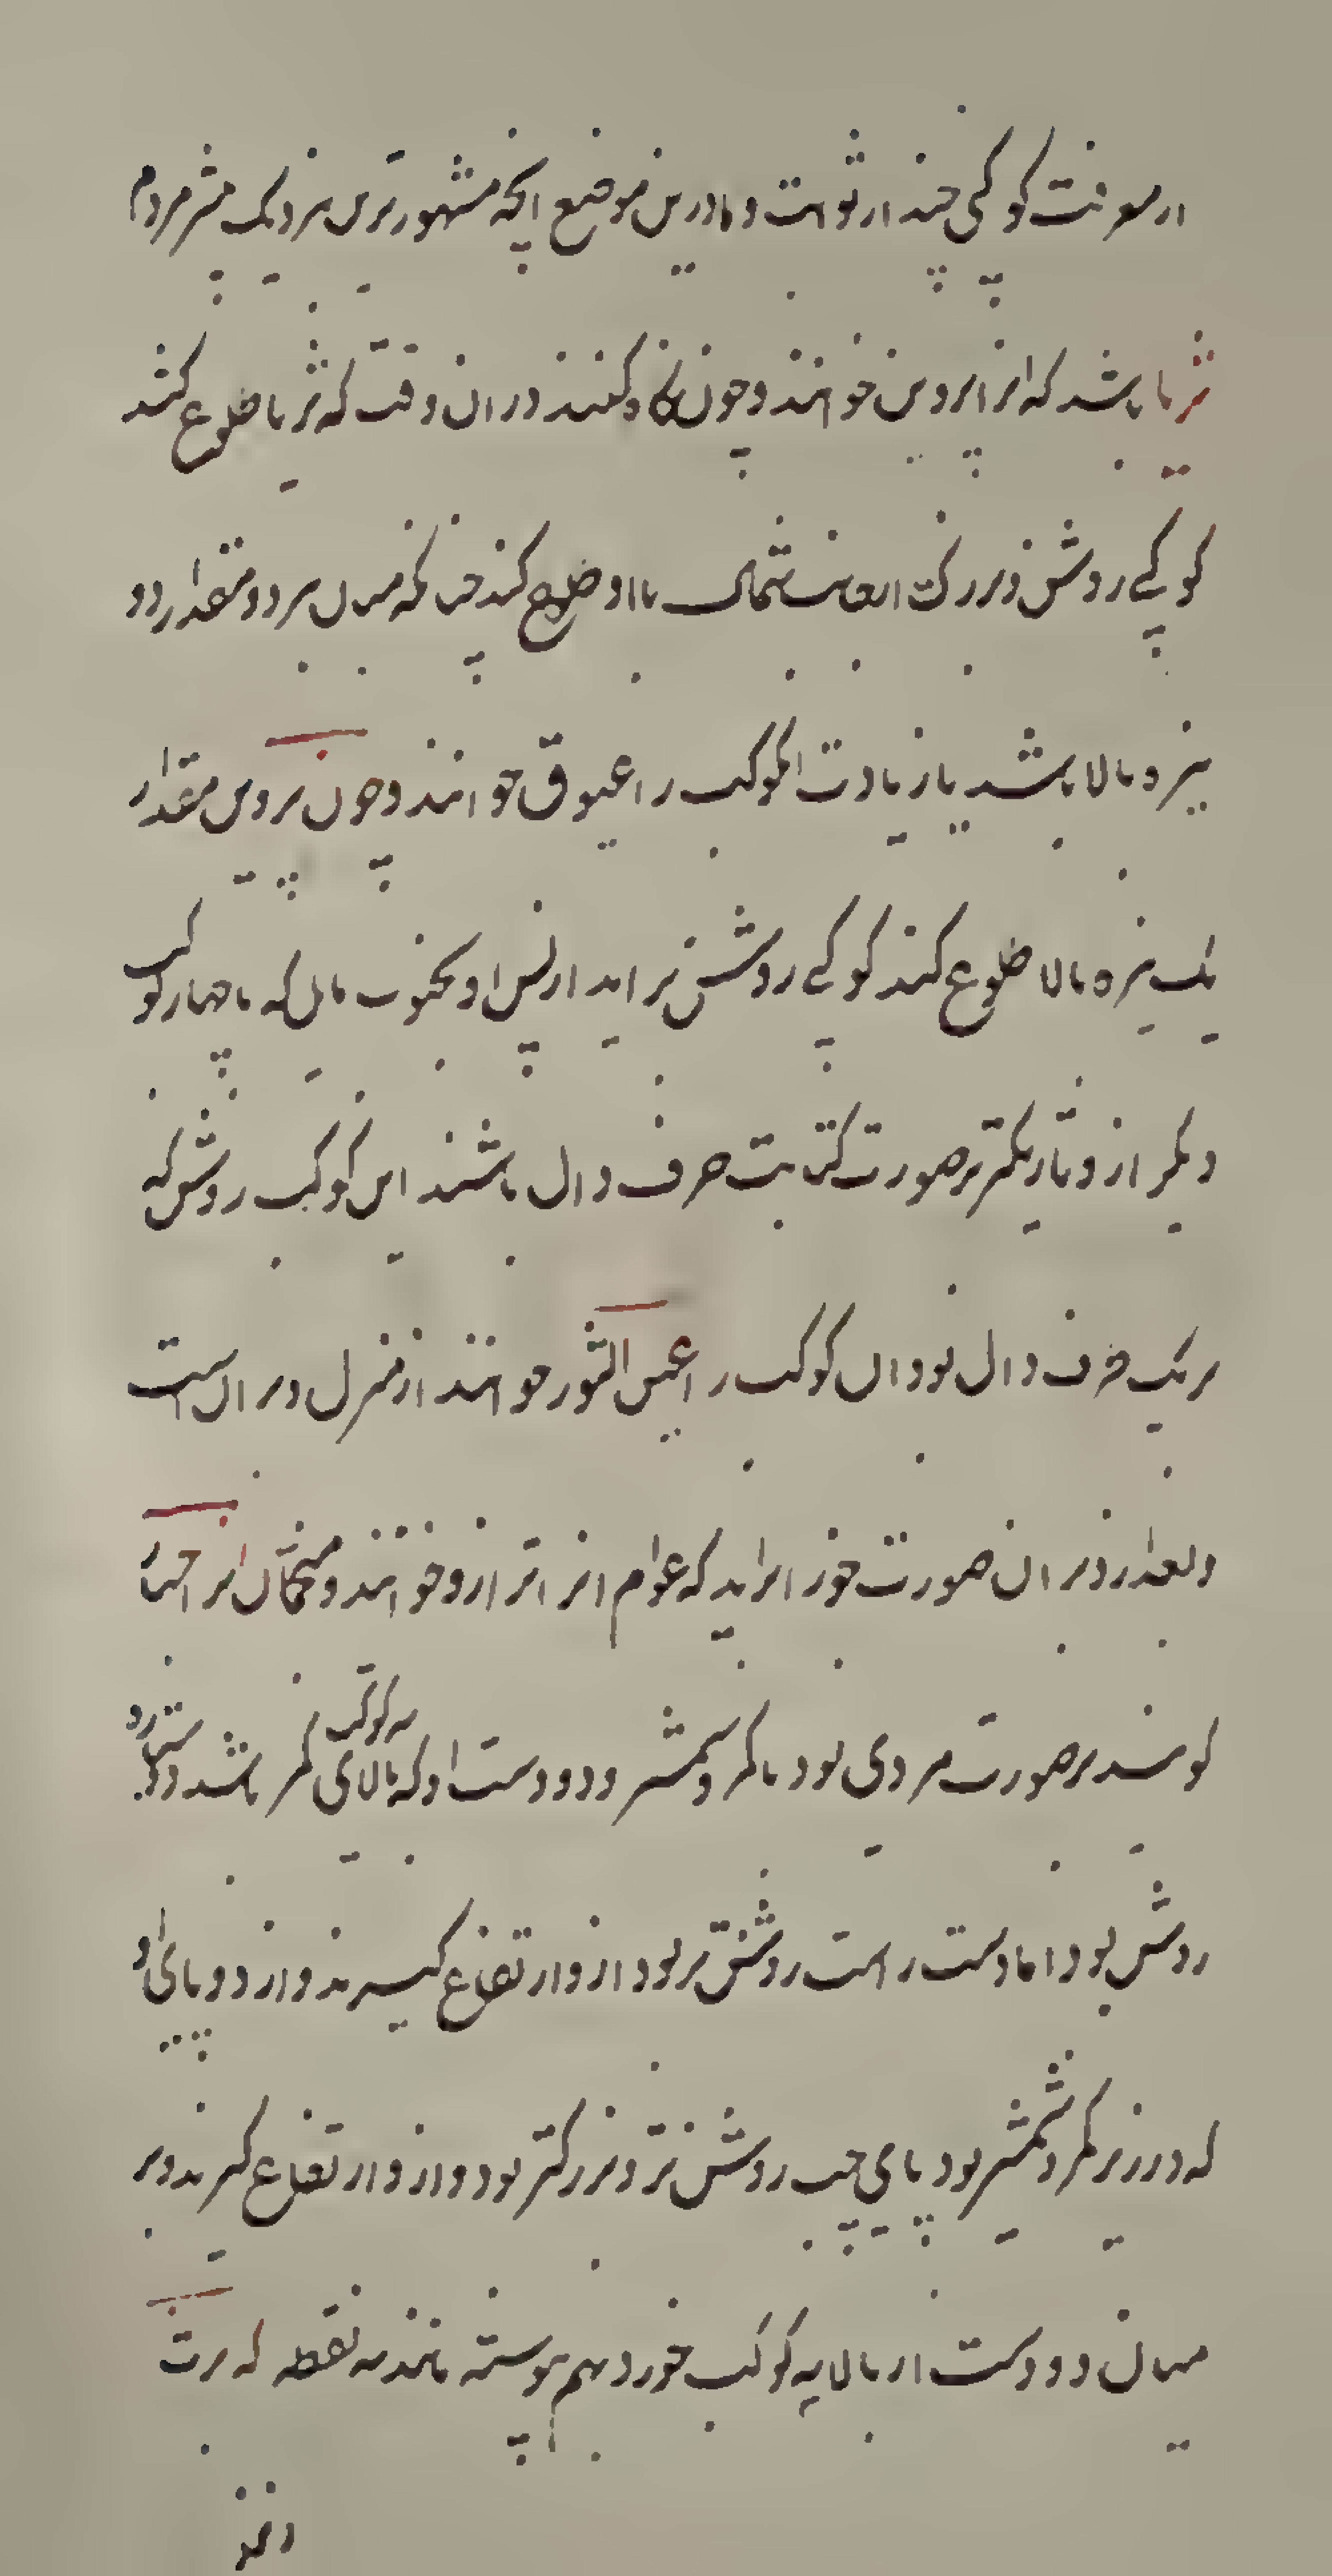 از معرفت کوکبی چند از ثوابت و ما درین موضع انچه مشهورترین بنزدیک بیشتر مردم
ثریا باشد که انرا پروین خوانند و چون نگاه کنند در ان وقت که ثریا طلوع کند
کوکبی روشن و بزرک از جانب شمال با او طلوع کند چنانکه میان هر دو مقدار دو
نیزه بالا باشد یا زیادت ان کوکب را عیوق خوانند و چون پروین مقدار
یک نیزه بالا طلوع کند کوکبی روشن بر اید از پس او بجنوب مایل که با چهار کوکب
دیکر ازو تاریکتر بر صورت کتابت حرف دال باشند این کوکب روشن که
بر یک طرف دال بود ان کوکب را عین الثور خوانند از منزل دبران است
و بعد از دبران صورت جوزا براید که عوام انرا ترازو خوانند و منجمان انرا جبار
کویند بر صورت مردی بود با کمر و شمشیر و دو دست او که بالای سه کوکب کمر باشد دو ستاره
روشن بود اما دست راست روشن تر بود ازو ارتفاع کیرند و از دو پای او
که در زیر کمر و شمشیر بود پای چپ روشن تر و بزرکتر بود و ازو ارتفاع کیرند و بر
میان دو دست از بالا سه کوکب خورد بهم پیوسته مانند سه نقطه که بر ث